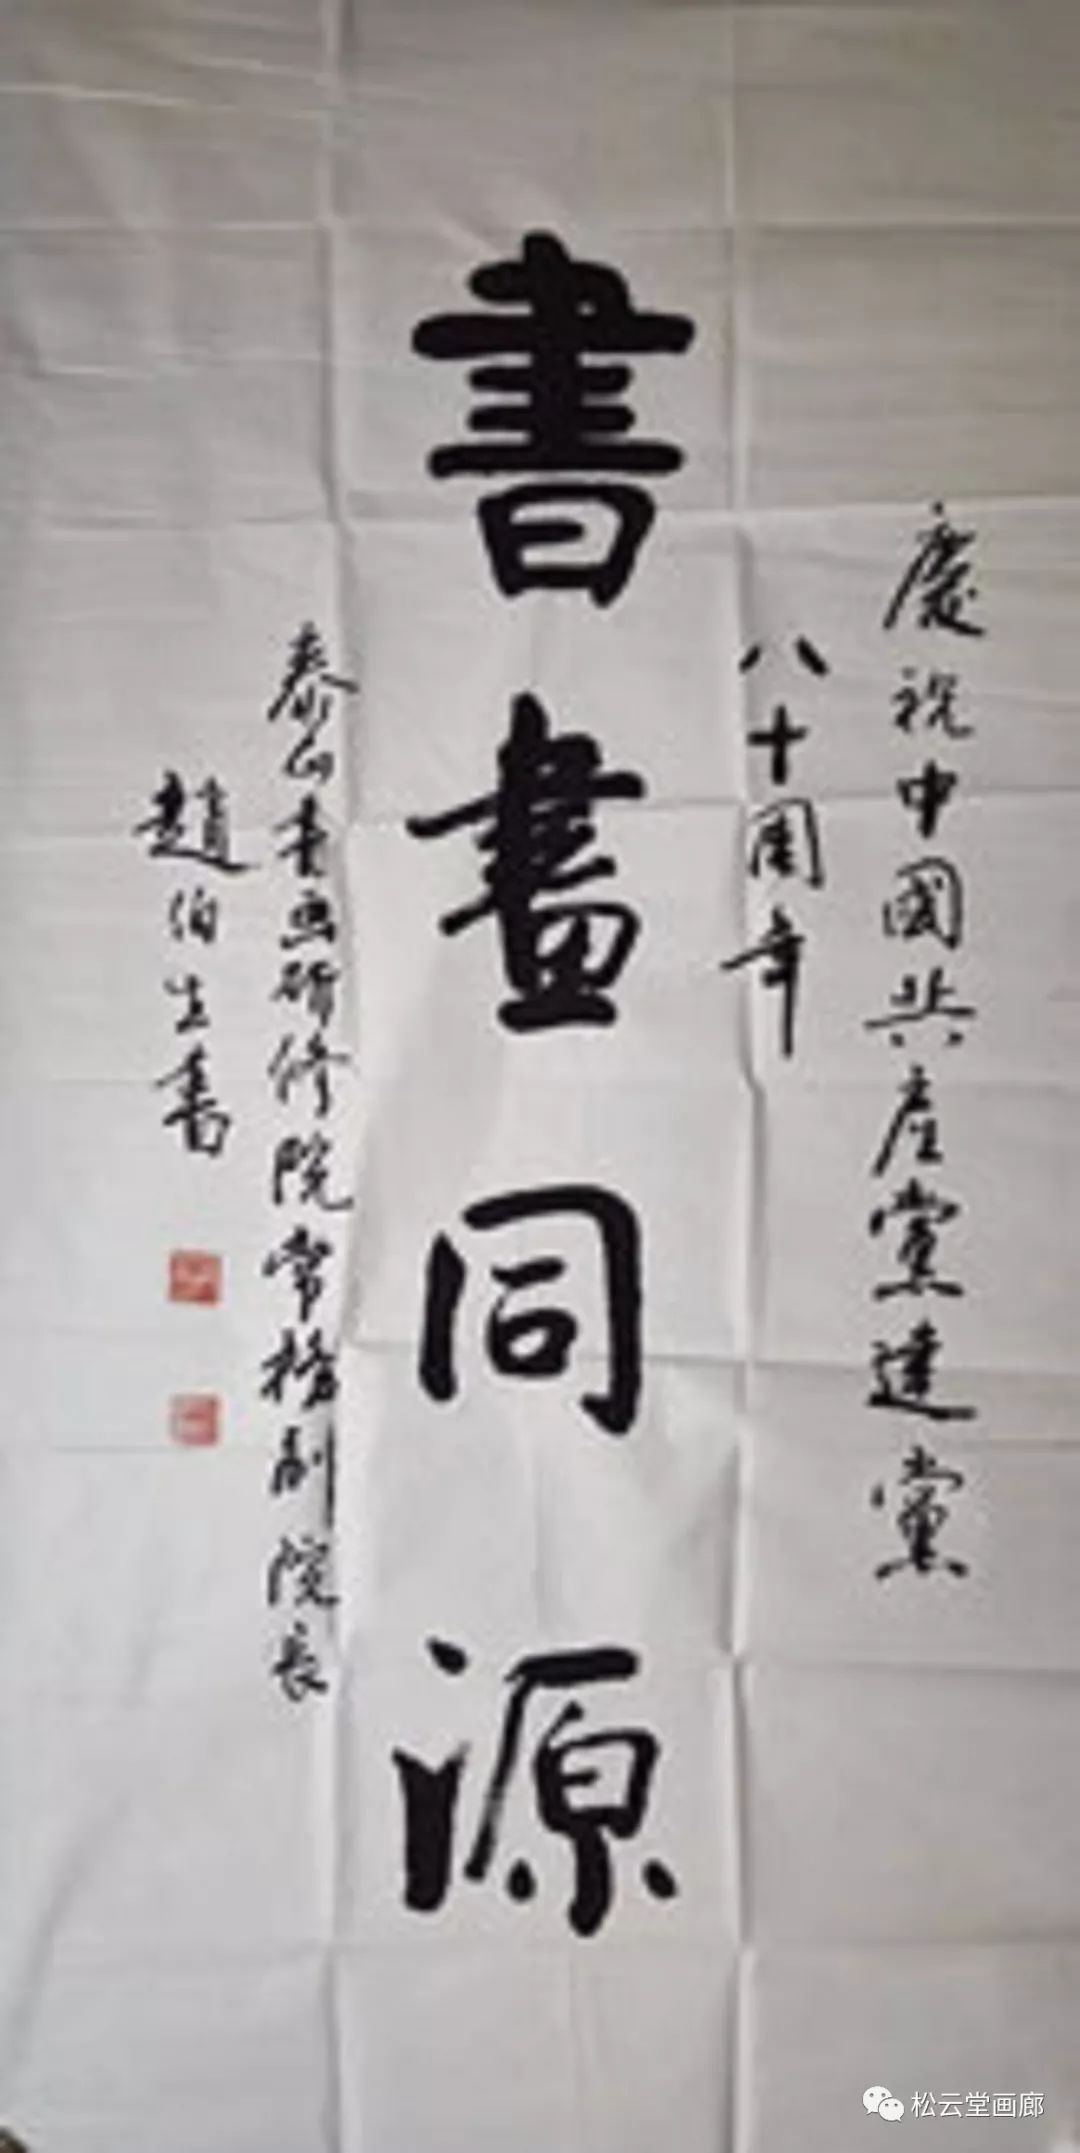 慶祝中國共産黨建黨
八十周年
書畫同源
泰山書画研修院常務副院長
趙伯生書
松云堂画廊